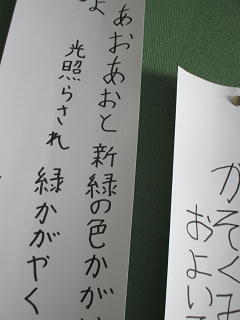 よ
あおあおと 新緑の色かがい
光照らされ 緑かがやく
かそくみ
およいで